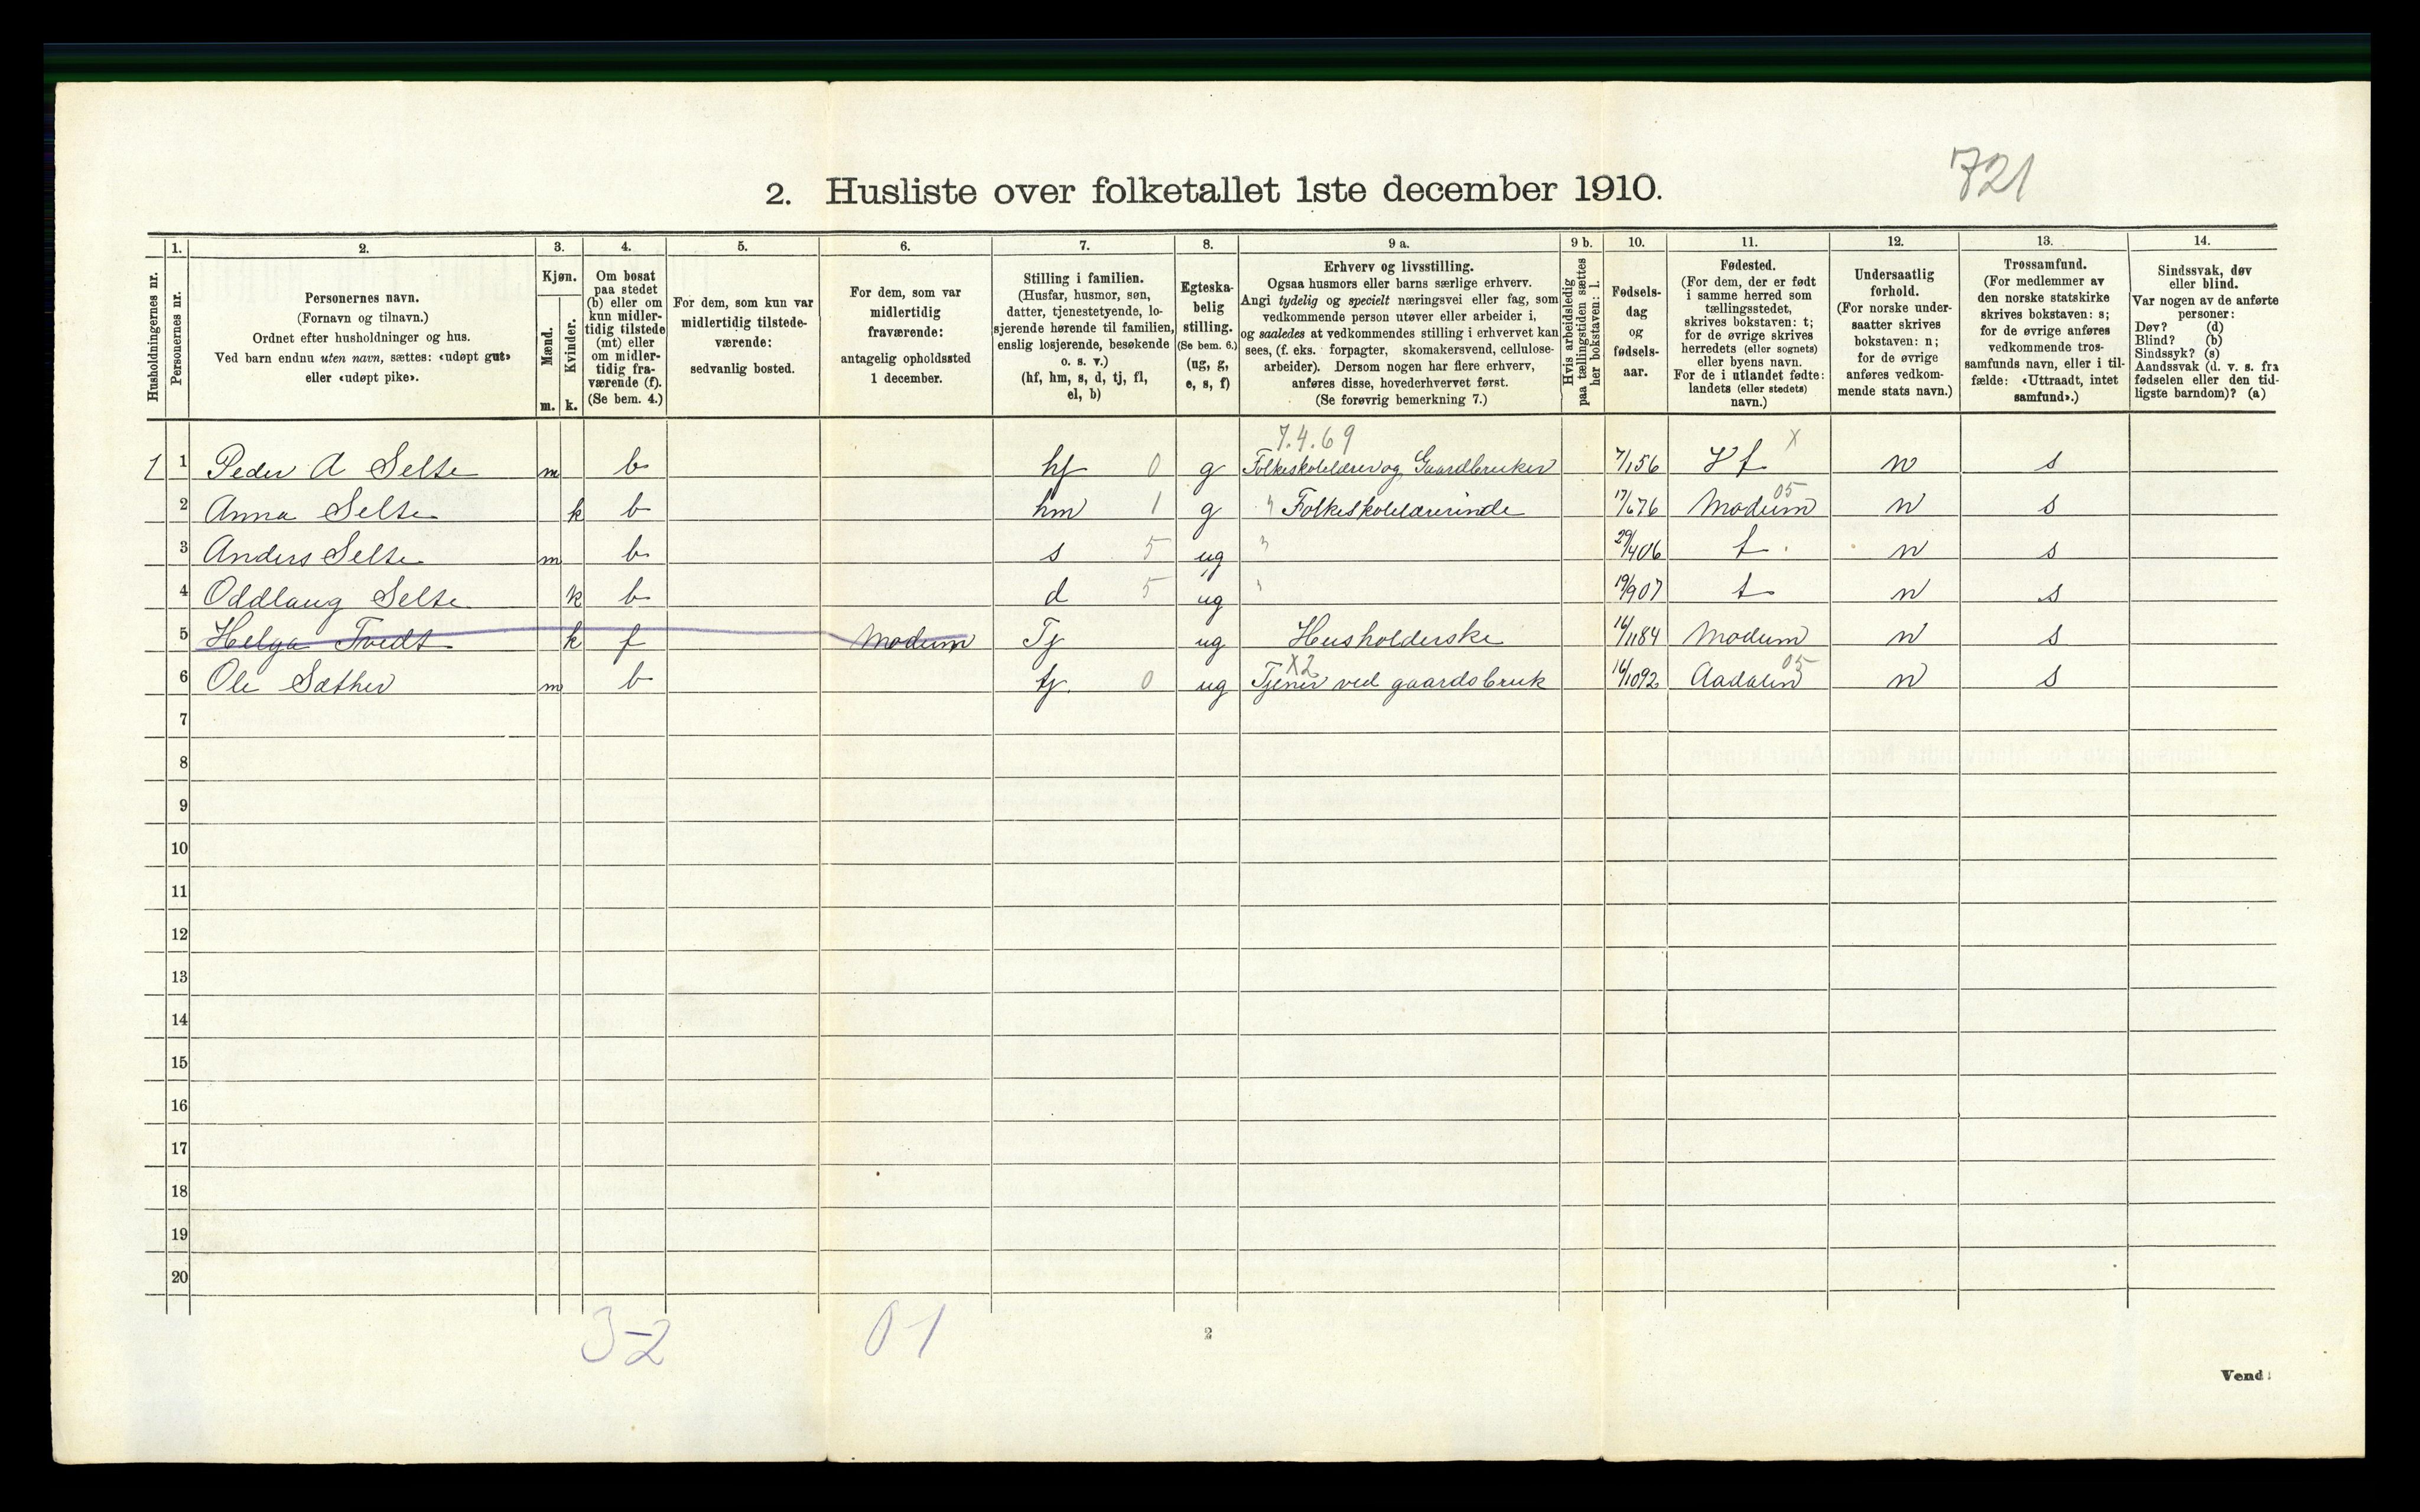 721
2. Husliste over folketallet 1ste december 1910.
Husholdningernes nr.
1.
Personernes nr.
2.
Personernes navn.
(Fornavn og tilnavn.)
Ordnet efter husholdninger og hus.
Ved barn endnu uten navn, sættes: «udøpt gut»
eller «udøpt pike».
3.
Kjøn.
Mænd.
m.
Kvinder.
k.
4.
Om bosat
paa stedet
(b) eller om
kun midler-
tidig tilstede
(mt) eller
om midler-
tidig fra-
værende (f).
(Se bem. 4.)
5.
For dem, som kun var
midlertidig tilstede-
værende:
sedvanlig bosted.
6.
For dem, som var
midlertidig
fraværende:
antagelig opholdssted
1 december.
7.
Stilling i familien.
(Husfar, husmor, søn,
datter, tjenestetyende, lo-
sjerende hørende til familien,
enslig losjerende, besøkende
o. s. v.)
(hf, hm, s, d, tj, fl,
el, b)
8.
Egteska-
belig
stilling.
(Se bem. 6.)
(ug, g,
e, s, f)
9 a.
Erhverv og livsstilling.
Ogsaa husmors eller barns særlige erhverv.
Angi tydelig og specielt næringsvei eller fag, som
vedkommende person utøver eller arbeider i,
og saaledes at vedkommendes stilling i erhvervet kan
sees, (f. eks. forpagter, skomakersvend, cellulose-
arbeider). Dersom nogen har flere erhverv,
anføres disse, hovederhvervet først.
(Se forøvrig bemerkning 7.)
9 b.
Hvis arbeidsledig
paa tællingstiden sættes
her bokstaven: l.
10.
Fødsels-
dag
og
fødsels-
aar.
11.
Fødested.
(For dem, der er født
i samme herred som
tællingsstedet,
skrives bokstaven: t;
for de øvrige skrives
herredets (eller sognets)
eller byens navn.
For de i utlandet fødte:
landets (eller stedets)
navn.)
12.
Undersaatlig
forhold.
(For norske under-
saatter skrives
bokstaven: n;
for de øvrige
anføres vedkom-
mende stats navn.)
13.
Trossamfund.
(For medlemmer av
den norske statskirke
skrives bokstaven: s;
for de øvrige anføres
vedkommende tros-
samfunds navn, eller i til-
fælde: «Uttraadt, intet
samfund».)
14.
Sindssvak, døv
eller blind.
Var nogen av de anførte
personer:
Døv? (d)
Blind? (b)
Sindssyk? (s)
Aandssvak (d. v. s. fra
fødselen eller den tid-
ligste barndom)? (a)
7.4.69 x
1 1 Peder A Selte m b hf 0 g Folkeskolelærer og Gaardbruker 7/1 56 n s
2 Anna Selte k b hm 1 g Folkeskolelærerinde 17/6 76 Modum 05 n s
3 Anders Selte m b s 5 ug 29/4 06 t n s
4 Oddlaug Selte k b d 5 ug 19/9 07 t n s
5 Helga Tvedt k f Modum Tj ug Husholderske 16/11 84 Modum n s
6 Ole Sæther m b tj. 0 ug x2 Tjener ved gaardsbruk 16/10 92 Aadalen 05 n s
7
8
9
10
11
12
13
14
15
16
17
18
19
20
3-2 01
2
Vend!